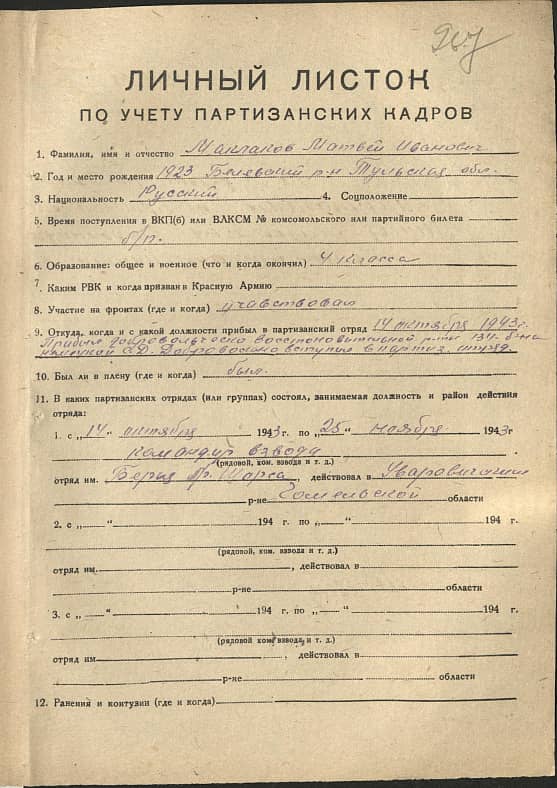 ЛИЧНЫЙ ЛИСТОК
ПО УЧЕТУ ПАРТИЗАНСКИХ КАДРОВ
1. Фамилия, имя и отчество Маклаков Матвей Иванович
2. Год и место рождения 1923 Белевский р-н Тульская обл.
3. Национальность Русский 4. Соцположение
5. Время поступления в ВКП(б) или ВЛКСМ № комсомольского или партийного билета
б/п.
6. Образование: общее и военное (что и когда окончил) 4 класса
7. Каким РВК и когда призван в Красную Армию
8. Участие на фронтах (где и когда) участвовал
9. Откуда, когда и с какой должности прибыл в партизанский отряд 14 октября 1943 г.
Прибыл добровольческо восстановительной роты 134
10. Был ли в плену (где и когда) был.
11. В каких партизанских отрядах (или группах) состоял, занимаемая должность и район действия
отряда:
1. с „14“ октября 1943 г. по „25“ ноября 1943 г
командир взвода
(рядовой, ком. взвода и т. д.)
отряд им. Берия бр. Щорса, действовал в Уваровичский
р-не Гомельской области
2. с „ “ 194 г. по „ “ 194 г.
(рядовой, ком. взвода и т. д.)
отряд им. , действовал в
р-не области
3. с „ “ 194 г. по „ “ 194 г.
(рядовой ком. взвода, и т. д.)
отряд им , действовал в
р-не области
12. Ранения и контузии (где и когда)